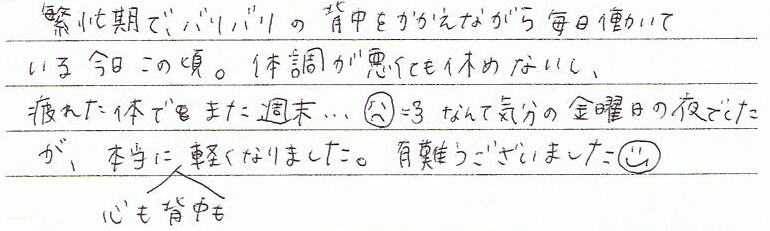 繁忙期で、バリバリの背中をかかえながら毎日働いて
いる今日この頃。体調が悪くても休めないし、
疲れた体でもまた週末… なんて気分の金曜日の夜でした
が、本当に軽くなりました。有難うございました
心も背中も